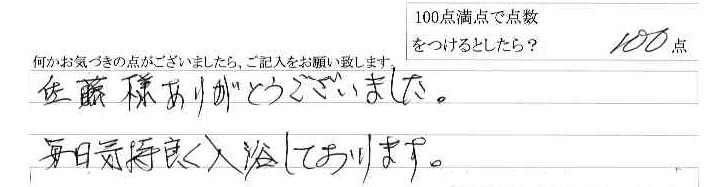 100点満点で点数
をつけるとしたら？ 100点
何かお気づきの点がございましたら、ご記入をお願い致します。
佐藤様ありがとうございました。
毎日気持良く入浴しております。